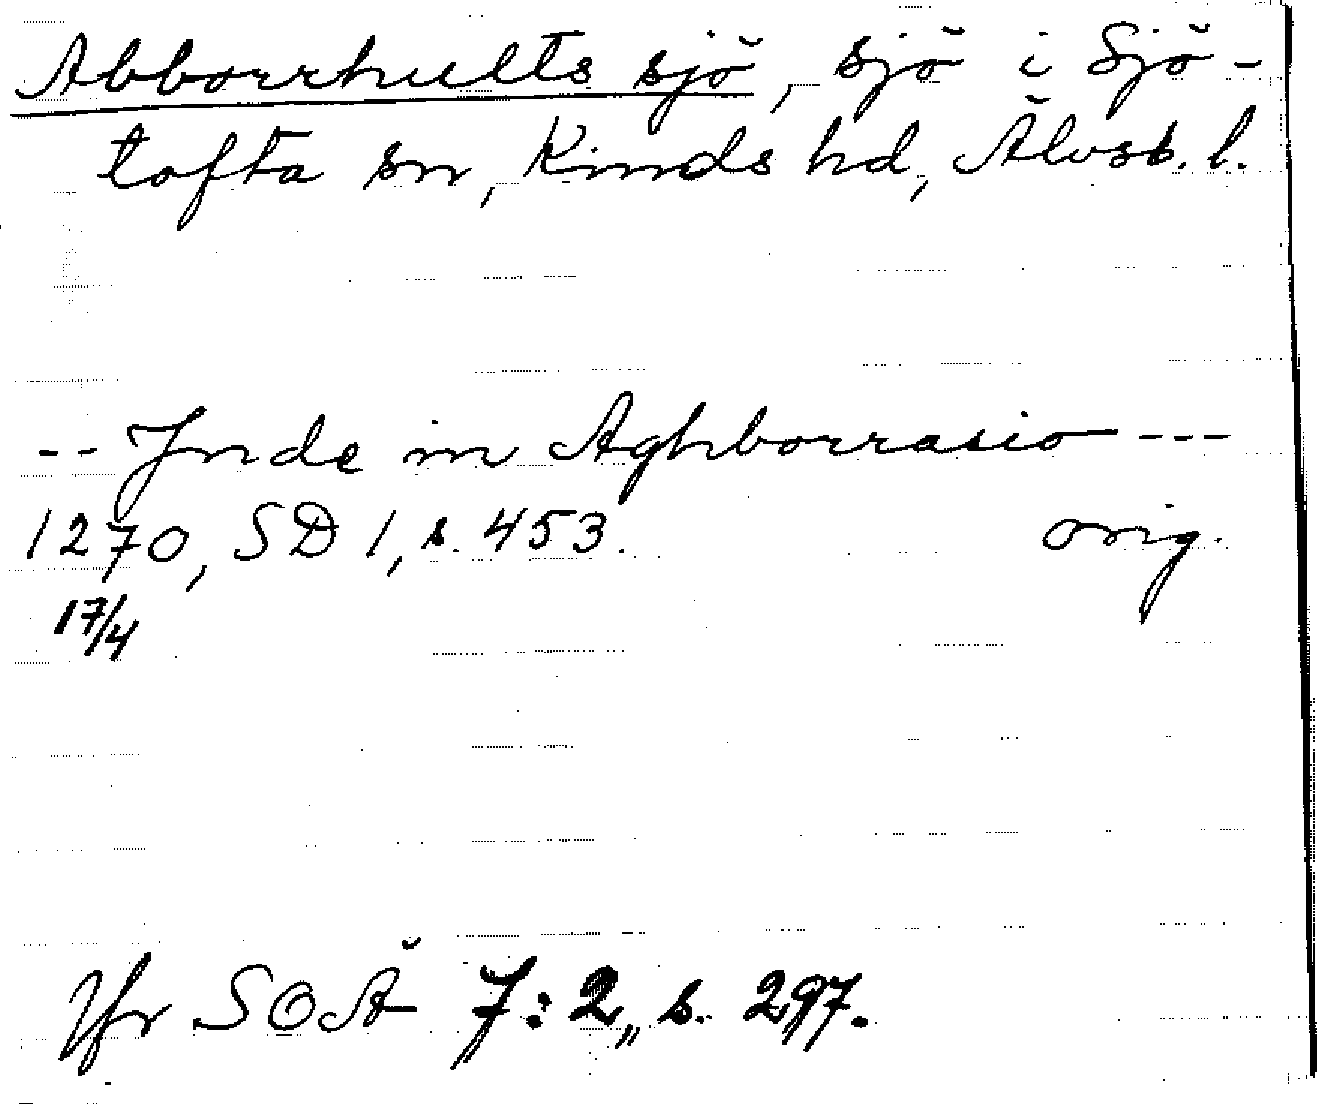 Abborrhults sjö, sjö i Sjö-
tofta sn, Kinds hd, Älvsb. l.
-- Jnde in Aghborrasio ---
1270, SD 1, s. 453. orig.
17/4
Jfr SOÄ 7:2, s. 297.